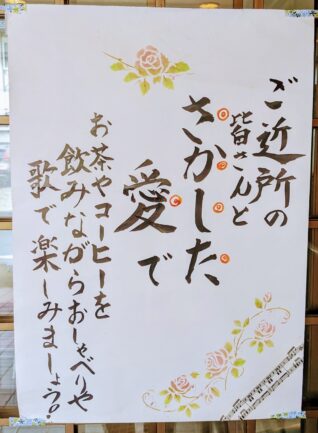 ご近所の
皆さんと
さかした
愛で
お茶やコーヒーを
飲みながらおしゃべりや
歌で楽しみましょう。